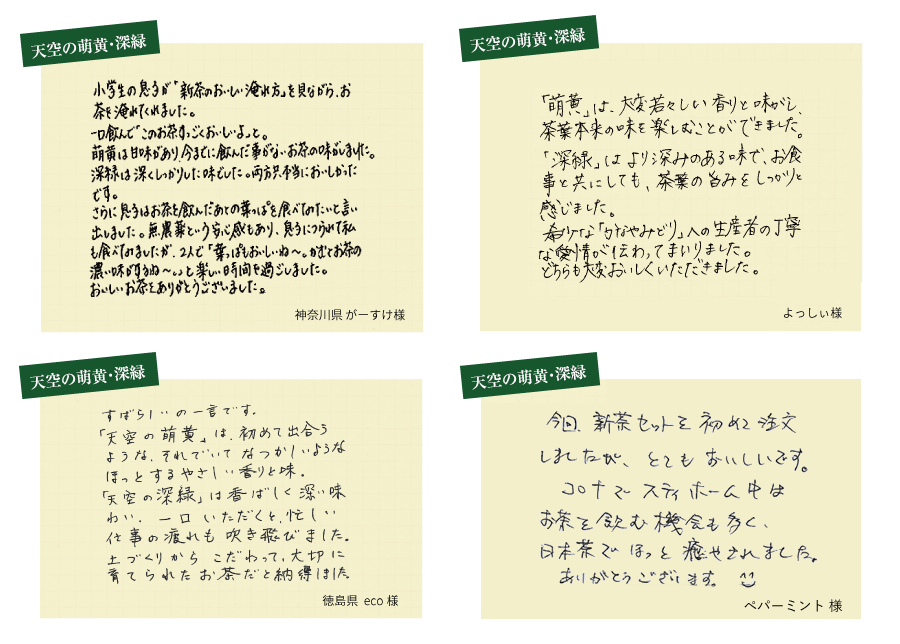 天空の萌黄・深緑
小学生の息子が「新茶のおいしい淹れ方」を見ながら、お
茶を淹れてくれました。
一口飲んで「このお茶すっごくおいしいよっ」と。
萌黄は甘味があり、今までに飲んだ事がないお茶の味がしました。
深緑は深くしっかりした味でした。両方共本当においしかった
です。
さらに息子はお茶を飲んだあとの葉っぱを食べてみたいと言い
出しました。無農薬という安心感もあり、息子につられて私
も食べてみましたが、2人で「葉っぱもおいしいね〜。かむとお茶の
濃い味がするね〜。」と楽しい時間を過ごしました。
おいしいお茶をありがとうございました。
神奈川県 がーすけ様
天空の萌黄・深緑
「萌黄」は、大変若々しい香りと味がし、
茶葉本来の味を楽しむことができました。
「深緑」はより深みのある味で、お食
事と共にしても、茶葉の旨みをしっかりと
感じました。
希少な「かなやみどり」への生産者の丁寧
な愛情が伝わってまいりました。
どちらも大変おいしくいただきました。
よっしぃ様
天空の萌黄・深緑
すばらしいの一言です。
「天空の萌黄」は、初めて出合う
ような、それでいてなつかしいような
ほっとするやさしい香りと味。
「天空の深緑」は香ばしく深い味
わい。一口いただくと、忙しい
仕事の疲れも吹き飛びました。
土づくりからこだわって、大切に
育てられたお茶だと納得しました。
徳島県 eco 様
天空の萌黄・深緑
今回、新茶セットを初めて注文
しましたが、とてもおいしいです。
コロナでステイホーム中は
お茶を飲む機会も多く、
日本茶でほっと癒やされました。
ありがとうございます。
ペパーミント 様